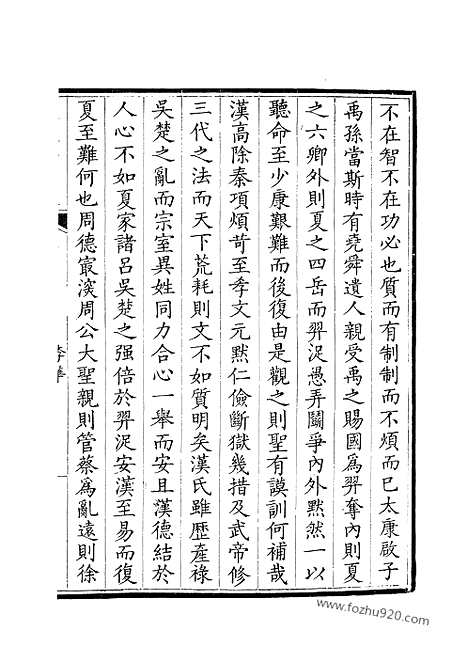 不在智不在功必也質而有制制而不煩而已太康啟子
禹孫當斯時有堯舜遺人親受禹之賜國為羿奪內則夏
之六卿外則夏之四岳而羿浞愚弄鬬爭內外黙然一以
聽命至少康艱難而後復由是觀之則聖有謨訓何補哉
漢高除秦項煩苛至孝文元黙仁儉斷獄幾措及武帝修
三代之法而天下荒耗則文不如質明矣漢氏雖歷產祿
吳楚之亂而宗室異姓同力合心一舉而安且漢德結於
人心不如夏家諸呂吳楚之强倍於羿浞安漢至易而復
夏至難何也周德㝡深周公大聖親則管蔡為亂遠則徐
李華
一
www.fozhu920.com